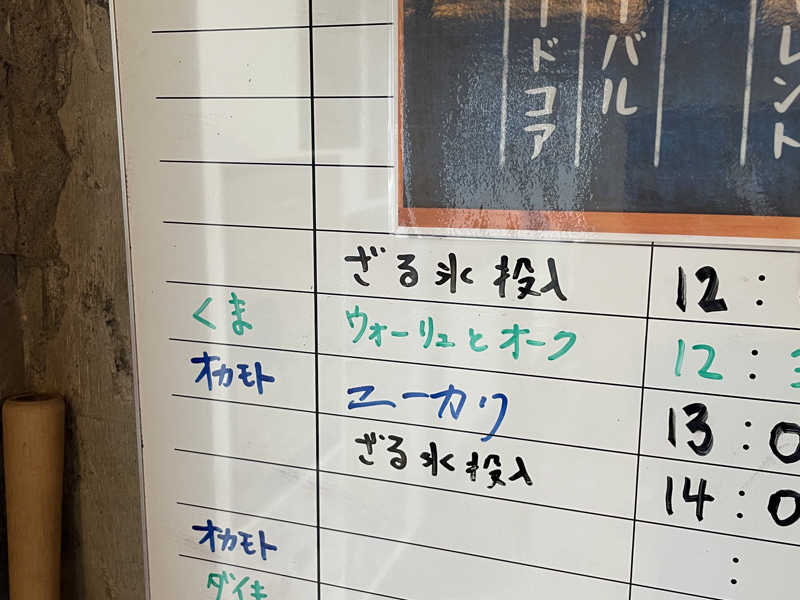 ードコア
バル
レント
ざる氷投入 12:
くま ウォーリュとオーク 12:3
オカモト ユーカリ 13:0
ざる氷投入 14:0
オカモト :
ダイキ